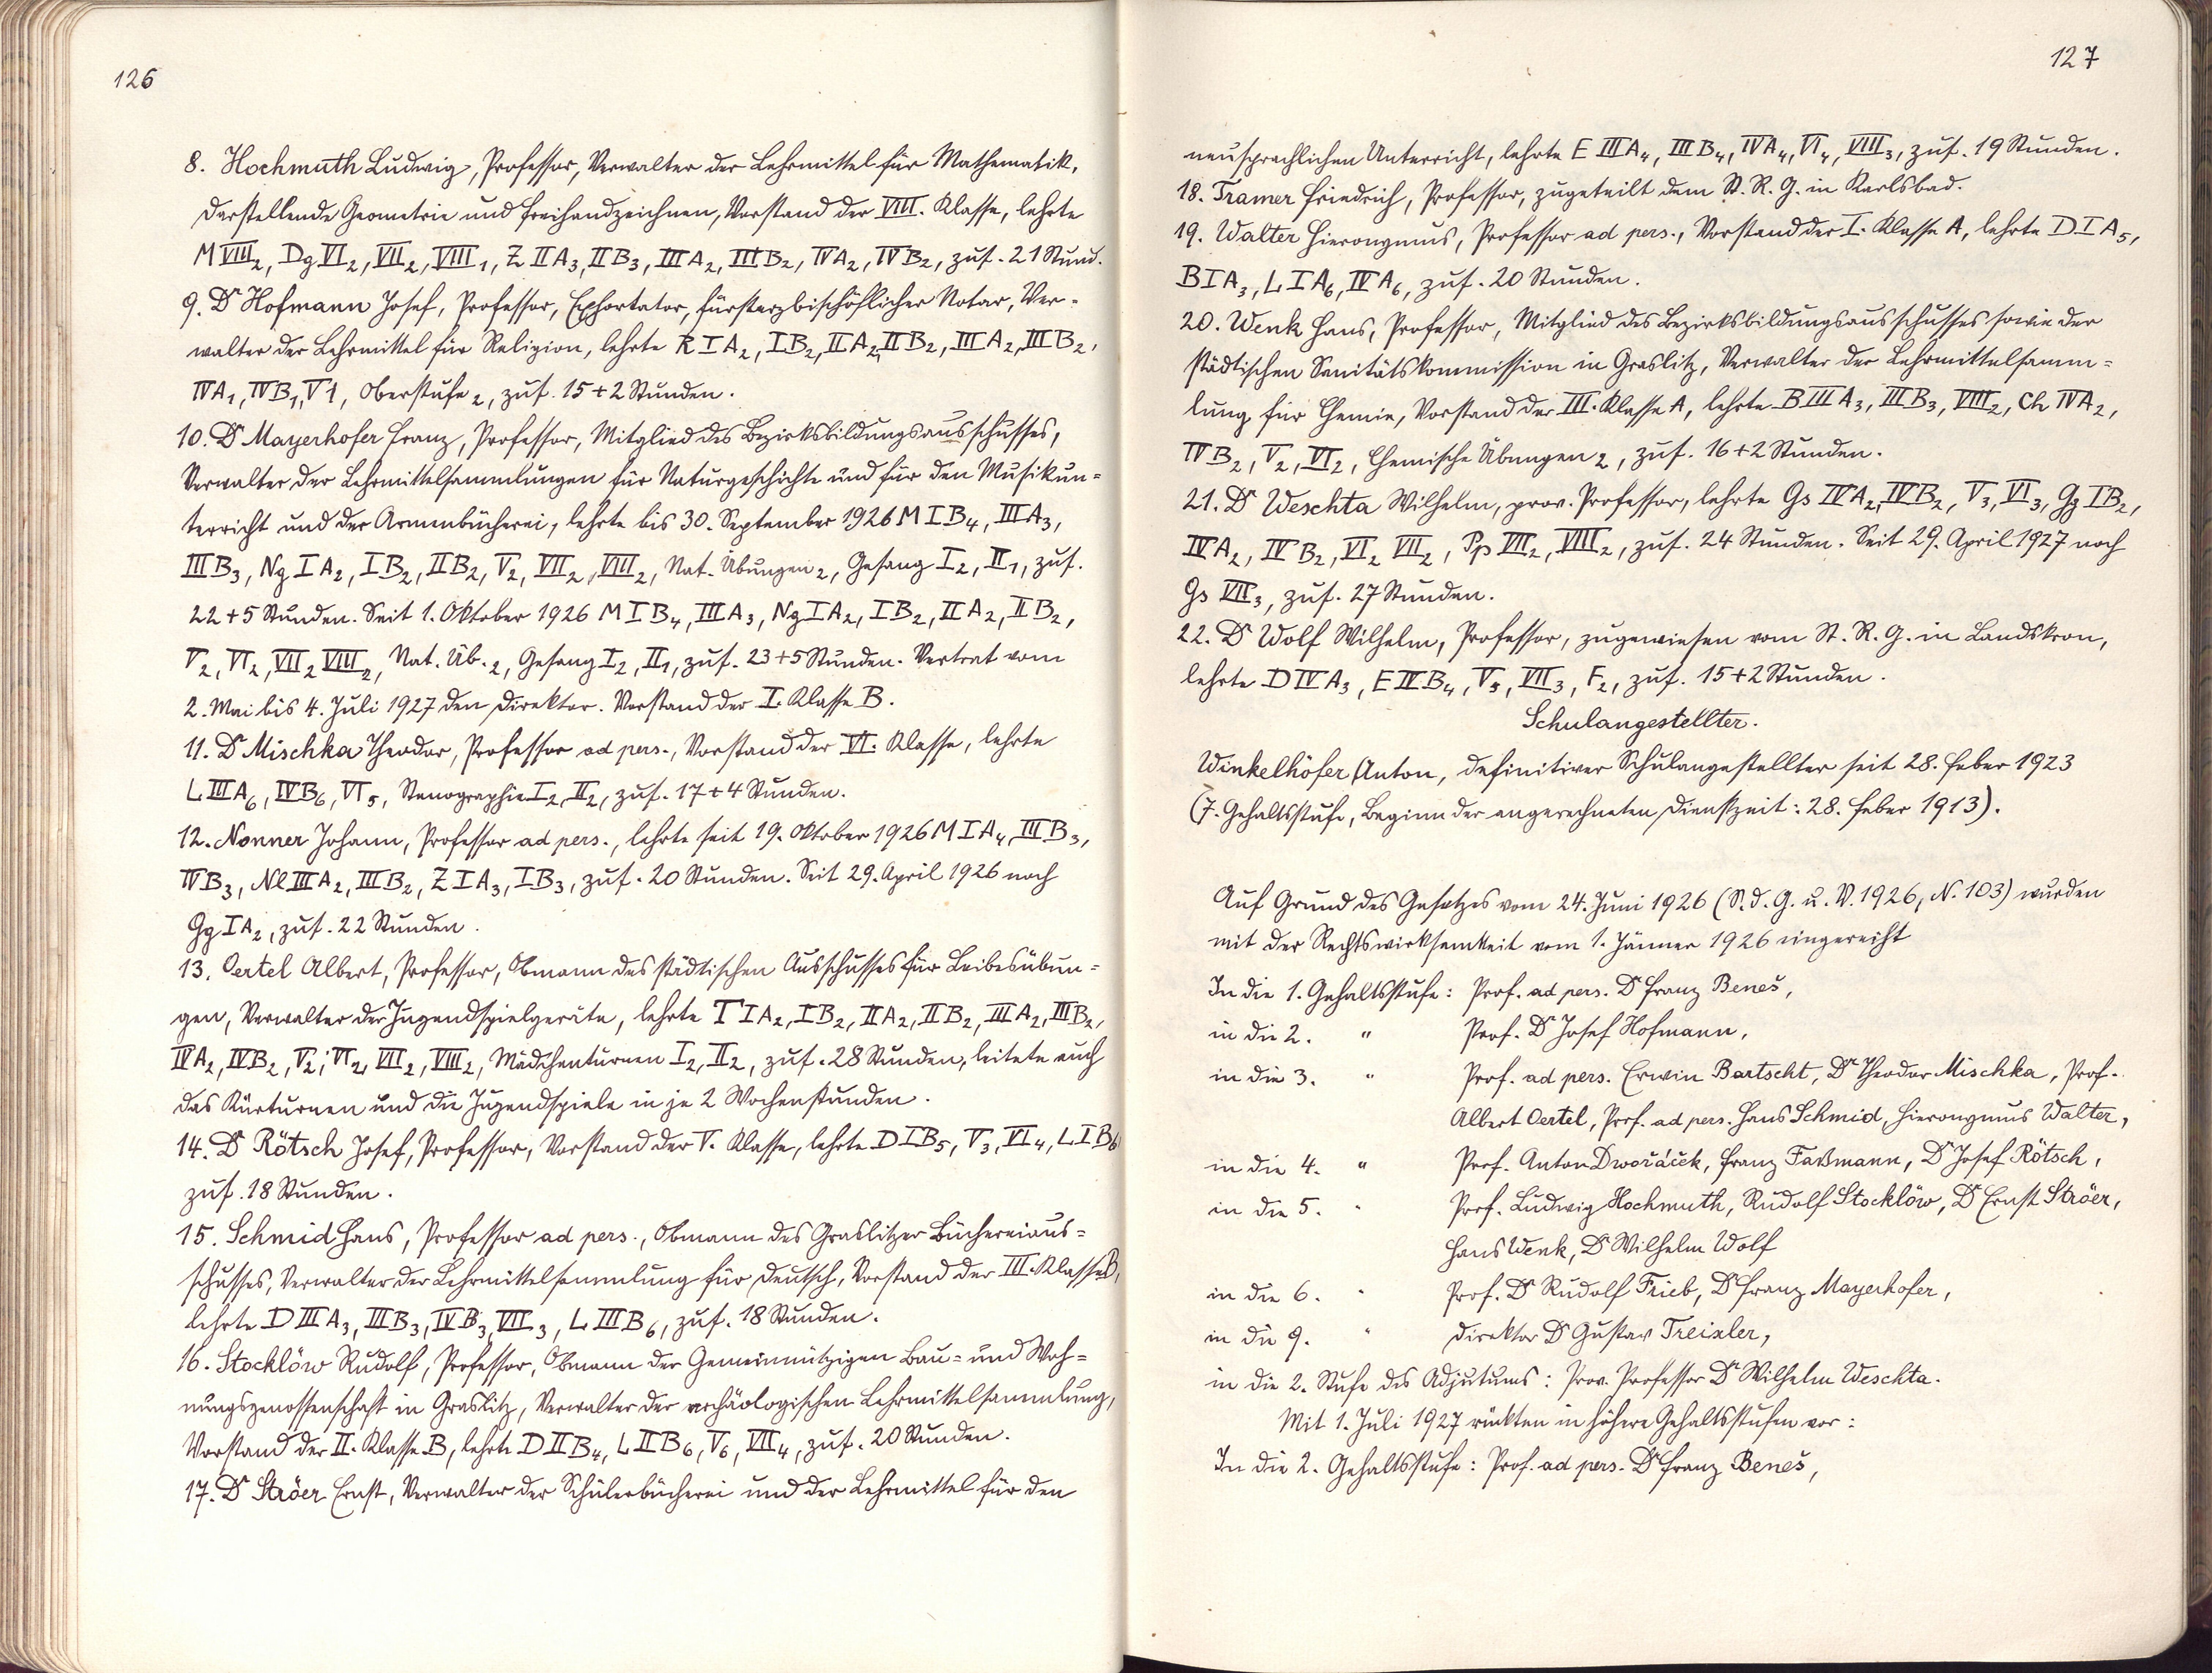 126
8. Hochmuth Ludwig, Professor, Verwalter der Lehrmittel für Mathematik,
darstellende Geometrie und Freihandzeichnen, Vorstand der VIII. Klasse, lehrte
M VIII₂, Dg VI₂, VII₂, VIII₁, Z II A₃, II B₃, III A₂, III B₂, IV A₂, IV B₂, zus. 21 Stund.
9. Dr Hofmann Josef, Professor, Exhortator, fürsterzbischöflicher Notar, Ver-
walter der Lehrmittel für Religion, lehrte R I A₂, I B₂, II A₂, II B₂, III A₂, III B₂,
IV A₁, IV B₁, V 1, Oberstufe ₂, zus. 15 + 2 Stunden.
10. Dr Mayerhofer Franz, Professor, Mitglied des Bezirksbildungsausschusses,
Verwalter der Lehrmittelsammlungen für Naturgeschichte und für den Musikun-
terricht und der Armenbücherei, lehrte bis 30. September 1926 M I B₄, III A₃,
III B₃, Ng I A₂, I B₂, II B₂, V₂, VII₂, VIII₂, Nat. Übungen ₂, Gesang I₂, II₁, zus.
22 + 5 Stunden. Seit 1. Oktober 1926 M I B₄, III A₃, Ng I A₂, I B₂, II A₂, II B₂,
V₂, VI₂, VII₂ VIII₂, Nat. Üb. ₂, Gesang I₂, II₁, zus. 23 + 5 Stunden. Vertrat vom
2. Mai bis 4. Juli 1927 den Direktor. Vorstand der I. Klasse B.
11. Dr Mischka Theodor, Professor ad pers., Vorstand der VI. Klasse, lehrte
L III A₆, IV B₆, VI₅, Stenographie I₂, II₂, zus. 17 + 4 Stunden.
12. Nonner Johann, Professor ad pers., lehrte seit 19. Oktober 1926 M I A₄, III B₃,
IV B₃, Nl III A₂, III B₂, Z I A₃, I B₃, zus. 20 Stunden. Seit 29. April 1926 noch
Gg I A₂, zus. 22 Stunden.
13. Oertel Albert, Professor, Obmann des städtischen Ausschusses für Leibesübun-
gen, Verwalter der Jugendspielgeräte, lehrte T I A₂, I B₂, II A₂, II B₂, III A₂, III B₂,
IV A₂, IV B₂, V₂, VI₂, VII₂, VIII₂, Mädchenturnen I₂, II₂, zus. 28 Stunden, leitete auch
das Kürturnen und die Jugendspiele in je 2 Wochenstunden.
14. Dr Rötsch Josef, Professor, Vorstand der V. Klasse, lehrte D I B₅, V₃, VI₄, L I B₆
zus. 18 Stunden.
15. Schmid Hans, Professor ad pers., Obmann des Graslitzer Büchereiaus-
schusses, Verwalter der Lehrmittelsammlung für Deutsch, Vorstand der III. Klasse B,
lehrte D III A₃, III B₃, IV B₃, VII₃, L III B₆, zus. 18 Stunden.
16. Stocklöw Rudolf, Professor, Obmann der Gemeinnützigen Bau- und Woh-
nungsgenossenschaft in Graslitz, Verwalter der archäologischen Lehrmittelsammlung,
Vorstand der II. Klasse B, lehrte D II B₄, L II B₆, V₆, VII₄, zus. 20 Stunden.
17. Dr Ströer Ernst, Verwalter der Schülerbücherei und der Lehrmittel für den
127
neusprachlichen Unterricht, lehrte E III A₄, III B₄, IV A₄, VI₄, VIII₃, zus. 19 Stunden.
18. Tramer Friedrich, Professor, zugeteilt dem St. R. G. in Karlsbad.
19. Walter Hieronymus, Professor ad pers., Vorstand der I. Klasse A, lehrte D I A₅,
B I A₃, L I A₆, IV A₆, zus. 20 Stunden.
20. Wenk Hans, Professor, Mitglied des Bezirksbildungsausschusses sowie der
städtischen Sanitätskommission in Graslitz, Verwalter der Lehrmittelsamm-
lung für Chemie, Vorstand der III. Klasse A, lehrte B III A₃, III B₃, VIII₂, Ch IV A₂,
IV B₂, V₂, VI₂, Chemische Übungen ₂, zus. 16 + 2 Stunden.
21. Dr Weschta Wilhelm, prov. Professor, lehrte Gs IV A₂, IV B₂, V₃, VI₃, Gg I B₂,
IV A₂, IV B₂, VI₂ VII₂, Pp VII₂, VIII₂, zus. 24 Stunden. Seit 29. April 1927 noch
Gs VII₃, zus. 27 Stunden.
22. Dr Wolf Wilhelm, Professor, zugewiesen vom St. R. G. in Landskron,
lehrte D IV A₃, E IV B₄, V₅, VII₃, F₂, zus. 15 + 2 Stunden.
Schulangestellter.
Winkelhöfer Anton, definitiver Schulangestellter seit 28. Feber 1923
(7. Gehaltsstufe, Beginn der angerechneten Dienstzeit: 28. Feber 1913).
Auf Grund des Gesetzes vom 24. Juni 1926 (S. d. G. u. V. 1926, N. 103) wurden
mit der Rechtswirksamkeit vom 1. Jänner 1926 eingereiht
In die 1. Gehaltsstufe: Prof. ad pers. Dr Franz Beneš,
in die 2. " Prof. Dr Josef Hofmann,
in die 3. " Prof. ad pers. Erwin Bartscht, Dr Theodor Mischka, Prof.
Albert Oertel, Prof. ad pers. Hans Schmid, Hieronymus Walter,
in die 4. " Prof. Anton Dwořáček, Franz Faßmann, Dr Josef Rötsch,
in die 5. " Prof. Ludwig Hochmuth, Rudolf Stocklöw, Dr Ernst Ströer,
Hans Wenk, Dr Wilhelm Wolf
in die 6. " Prof. Dr Rudolf Frieb, Dr Franz Mayerhofer,
in die 9. " Direktor Dr Gustav Treixler,
in die 2. Stufe des Adjutums: Prov. Professor Dr Wilhelm Weschta.
Mit 1. Juli 1927 rückten in höhere Gehaltsstufen vor:
In die 2. Gehaltsstufe: Prof. ad pers. Dr Franz Beneš,